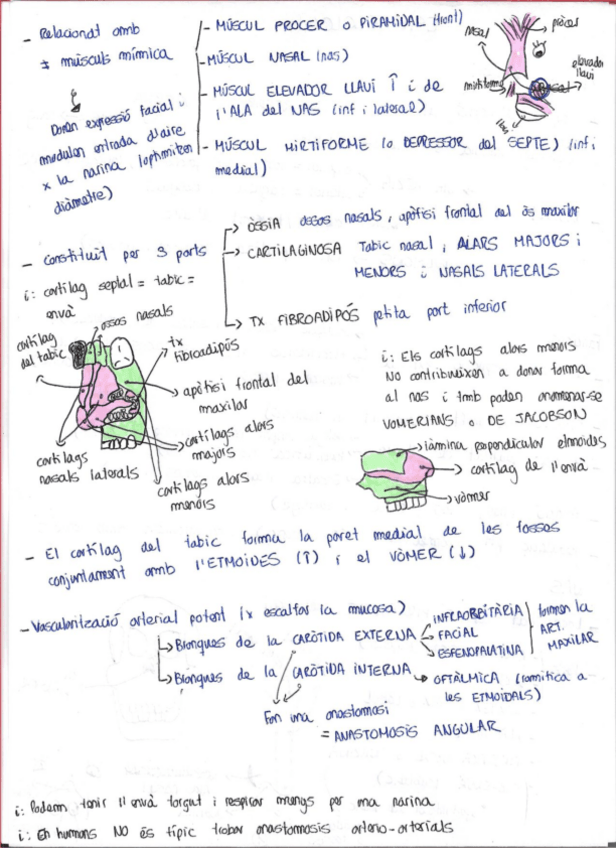 - Relacionat amb
≠ músculs mímica
Donen expressió facial i
modulen entrada d'aire
x la narina (optimitzen
diàmetre)
- MÚSCUL PROCER o PIRAMIDAL (front)
- MÚSCUL NASAL (nas)
- MÚSCUL ELEVADOR LLAVI ↑ i de
l'ALA del NAS (inf i lateral)
- MÚSCUL MIRTIFORME (o DEPRESSOR del SEPTE) (inf i
medial)
nasal
pròcer
elevador
llavi
mirtiforme
- Constituït per 3 parts
i: cartílag septal = tabic =
envà
→ ÒSSIA ossos nasals, apòfisi frontal del òs maxilar
→ CARTILAGINOSA Tabic nasal, ALARS MAJORS i
MENORS i NASALS LATERALS
→ TX FIBROADIPÓS petita part inferior
cartílag
del tabic
ossos nasals
tx
fibroadipós
apòfisi frontal del
maxilar
cartílags alars
majors
cartílags alars
menors
cartílags
nasals laterals
i: Els cartílags alars menors
NO contribueixen a donar forma
al nas i tmb poden anomenar-se
VOMERIANS o DE JACOBSON
làmina perpendicular etmoides
cartílag de l'envà
vòmer
- El cartílag del tabic forma la paret medial de les fosses
conjuntament amb l'ETMOIDES (↑) i el VÒMER (↓)
- Vascularització arterial potent (x escalfar la mucosa)
→ Branques de la CARÒTIDA EXTERNA
INFRAORBITÀRIA
FACIAL
ESFENOPALATINA
formen la
ART.
MAXILAR
→ Branques de la CARÒTIDA INTERNA → OFTÀLMICA (ramifica a
les ETMOIDALS)
Fan una anastomosi
= ANASTOMOSIS ANGULAR
i: Podem tenir l'envà torçut i respirar menys per una narina
i: En humans NO és típic trobar anastomosis arterio-arterials